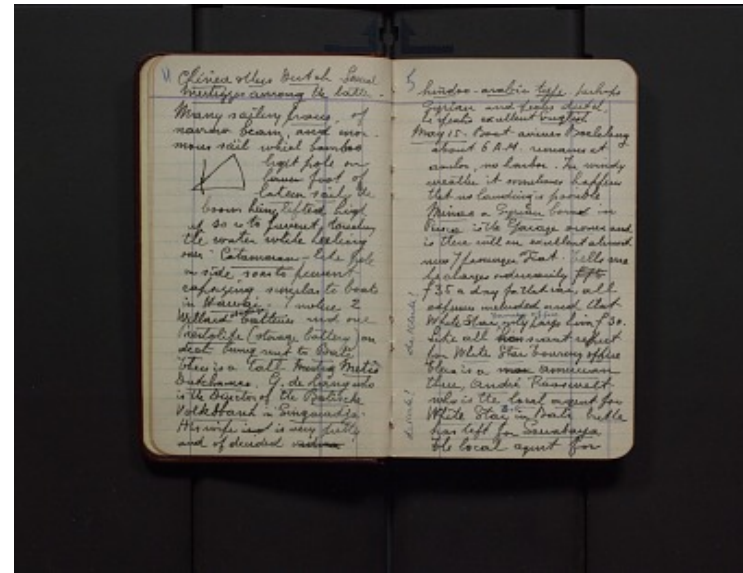 Chinese & other Dutch. Several
mestizzos among the latter.
Many sailing praus, of
narrow beam, and enor-
mous sail which bamboo
light pole on
lower foot of
lateen sail, the
boom being lifted high
up so as to prevent touching
the water while heeling
over. Catamaran-like pole
on side so as to prevent
capsizing similar to boats
in Hawaii. I notice 2
Willard batteries and one
Prestolite (storage battery) on
deck being sent to Bali.
There is a tall
Dutchman, G. de
is the Director of the
Volksbank in Singaradja.
His wife is very pretty
and of decided
5
hindoo-arabic type. Perhaps
Syrian and part dutch,
speaks excellent english
May 15. Boat arrives Boeleleng
about 6 A.M. remains at
anchor, no harbor. In windy
weather it sometimes happens
that no landing is possible.
Minas a Syrian born in
Persia is the Garage owner and
is there with an excellent almost
new 7 passenger Fiat. Tells me
he charges ordinarily
f 35 a day for the car, all
expenses included and that
White Star only pays him f 30.
Like all has scant respect
for White Star touring office
There is a american
there, André Roosevelt
who is the local agent for
White Star in Bali, but he
has left for Sourabaya.
The local agent for